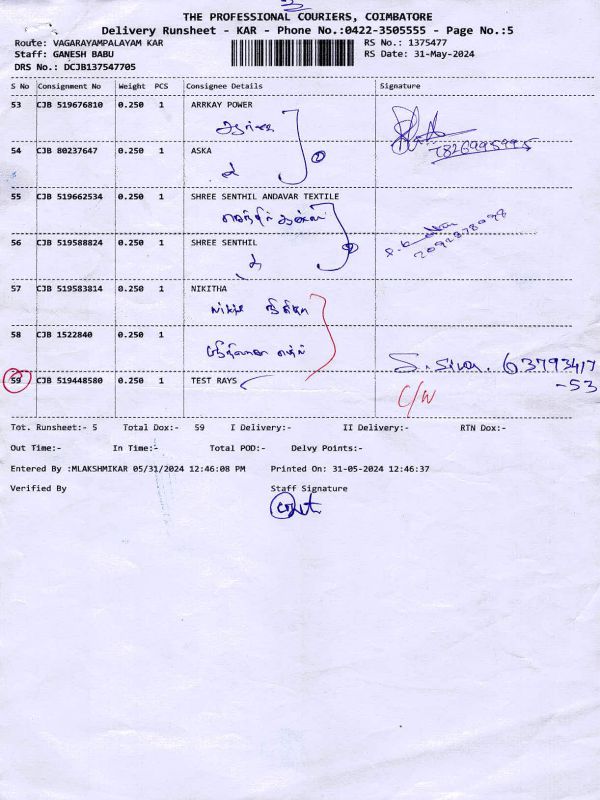 THE PROFESSIONAL COURIERS, COIMBATORE
Delivery Runsheet - KAR - Phone No.:0422-3505555 - Page No.:5
Route: VAGARAYAMPALAYAM KAR
RS No.: 1375477
Staff: GANESH BABU
RS Date: 31-May-2024
DRS No.: DCJB137547705
S No Consignment No Weight PCS Consignee Details Signature
53 CJB 519676810 0.250 1 ARRKAY POWER
7826995995
54 CJB 80237647 0.250 1 ASKA
55 CJB 519662534 0.250 1 SHREE SENTHIL ANDAVAR TEXTILE
56 CJB 519588824 0.250 1 SHREE SENTHIL
57 CJB 519583814 0.250 1 NIKITHA
58 CJB 1522840 0.250 1
63793417
-53
59 CJB 519448580 0.250 1 TEST RAYS
C/W
Tot. Runsheet:- 5 Total Dox:- 59 I Delivery:- II Delivery:- RTN Dox:-
Out Time:- In Time:- Total POD:- Delvy Points:-
Entered By :MLAKSHMIKAR 05/31/2024 12:46:08 PM Printed On: 31-05-2024 12:46:37
Verified By Staff Signature